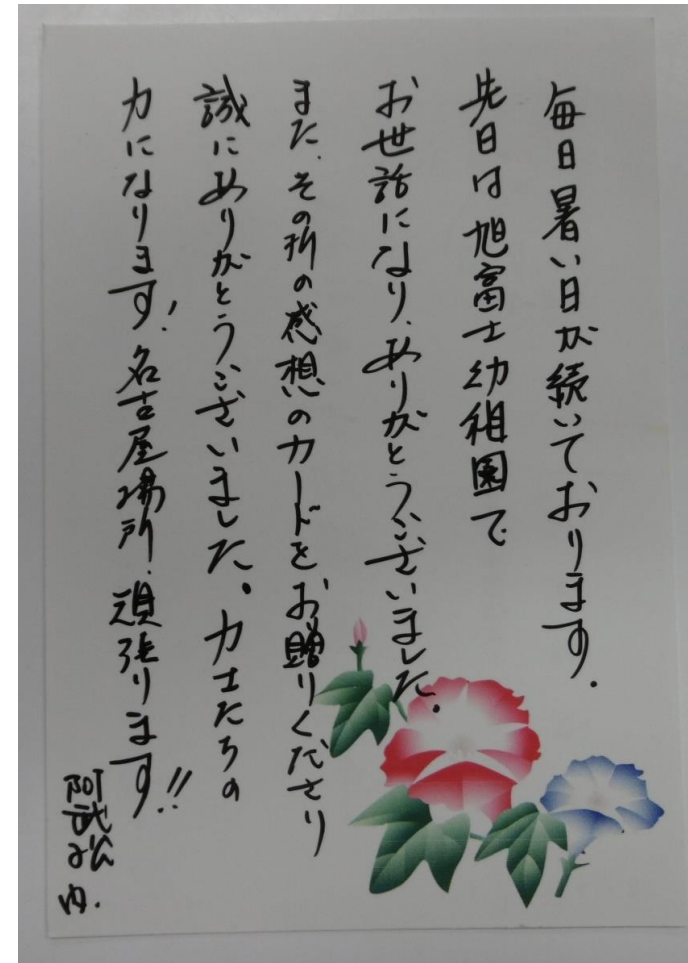 毎日暑い日が続いております.
先日は旭富士幼稚園で
お世話になり、ありがとうございました。
また、その折の感想のカードをお贈りくださり
誠にありがとうございました。力士たちの
力になります！名古屋場所、頑張ります!!
阿武松
内.